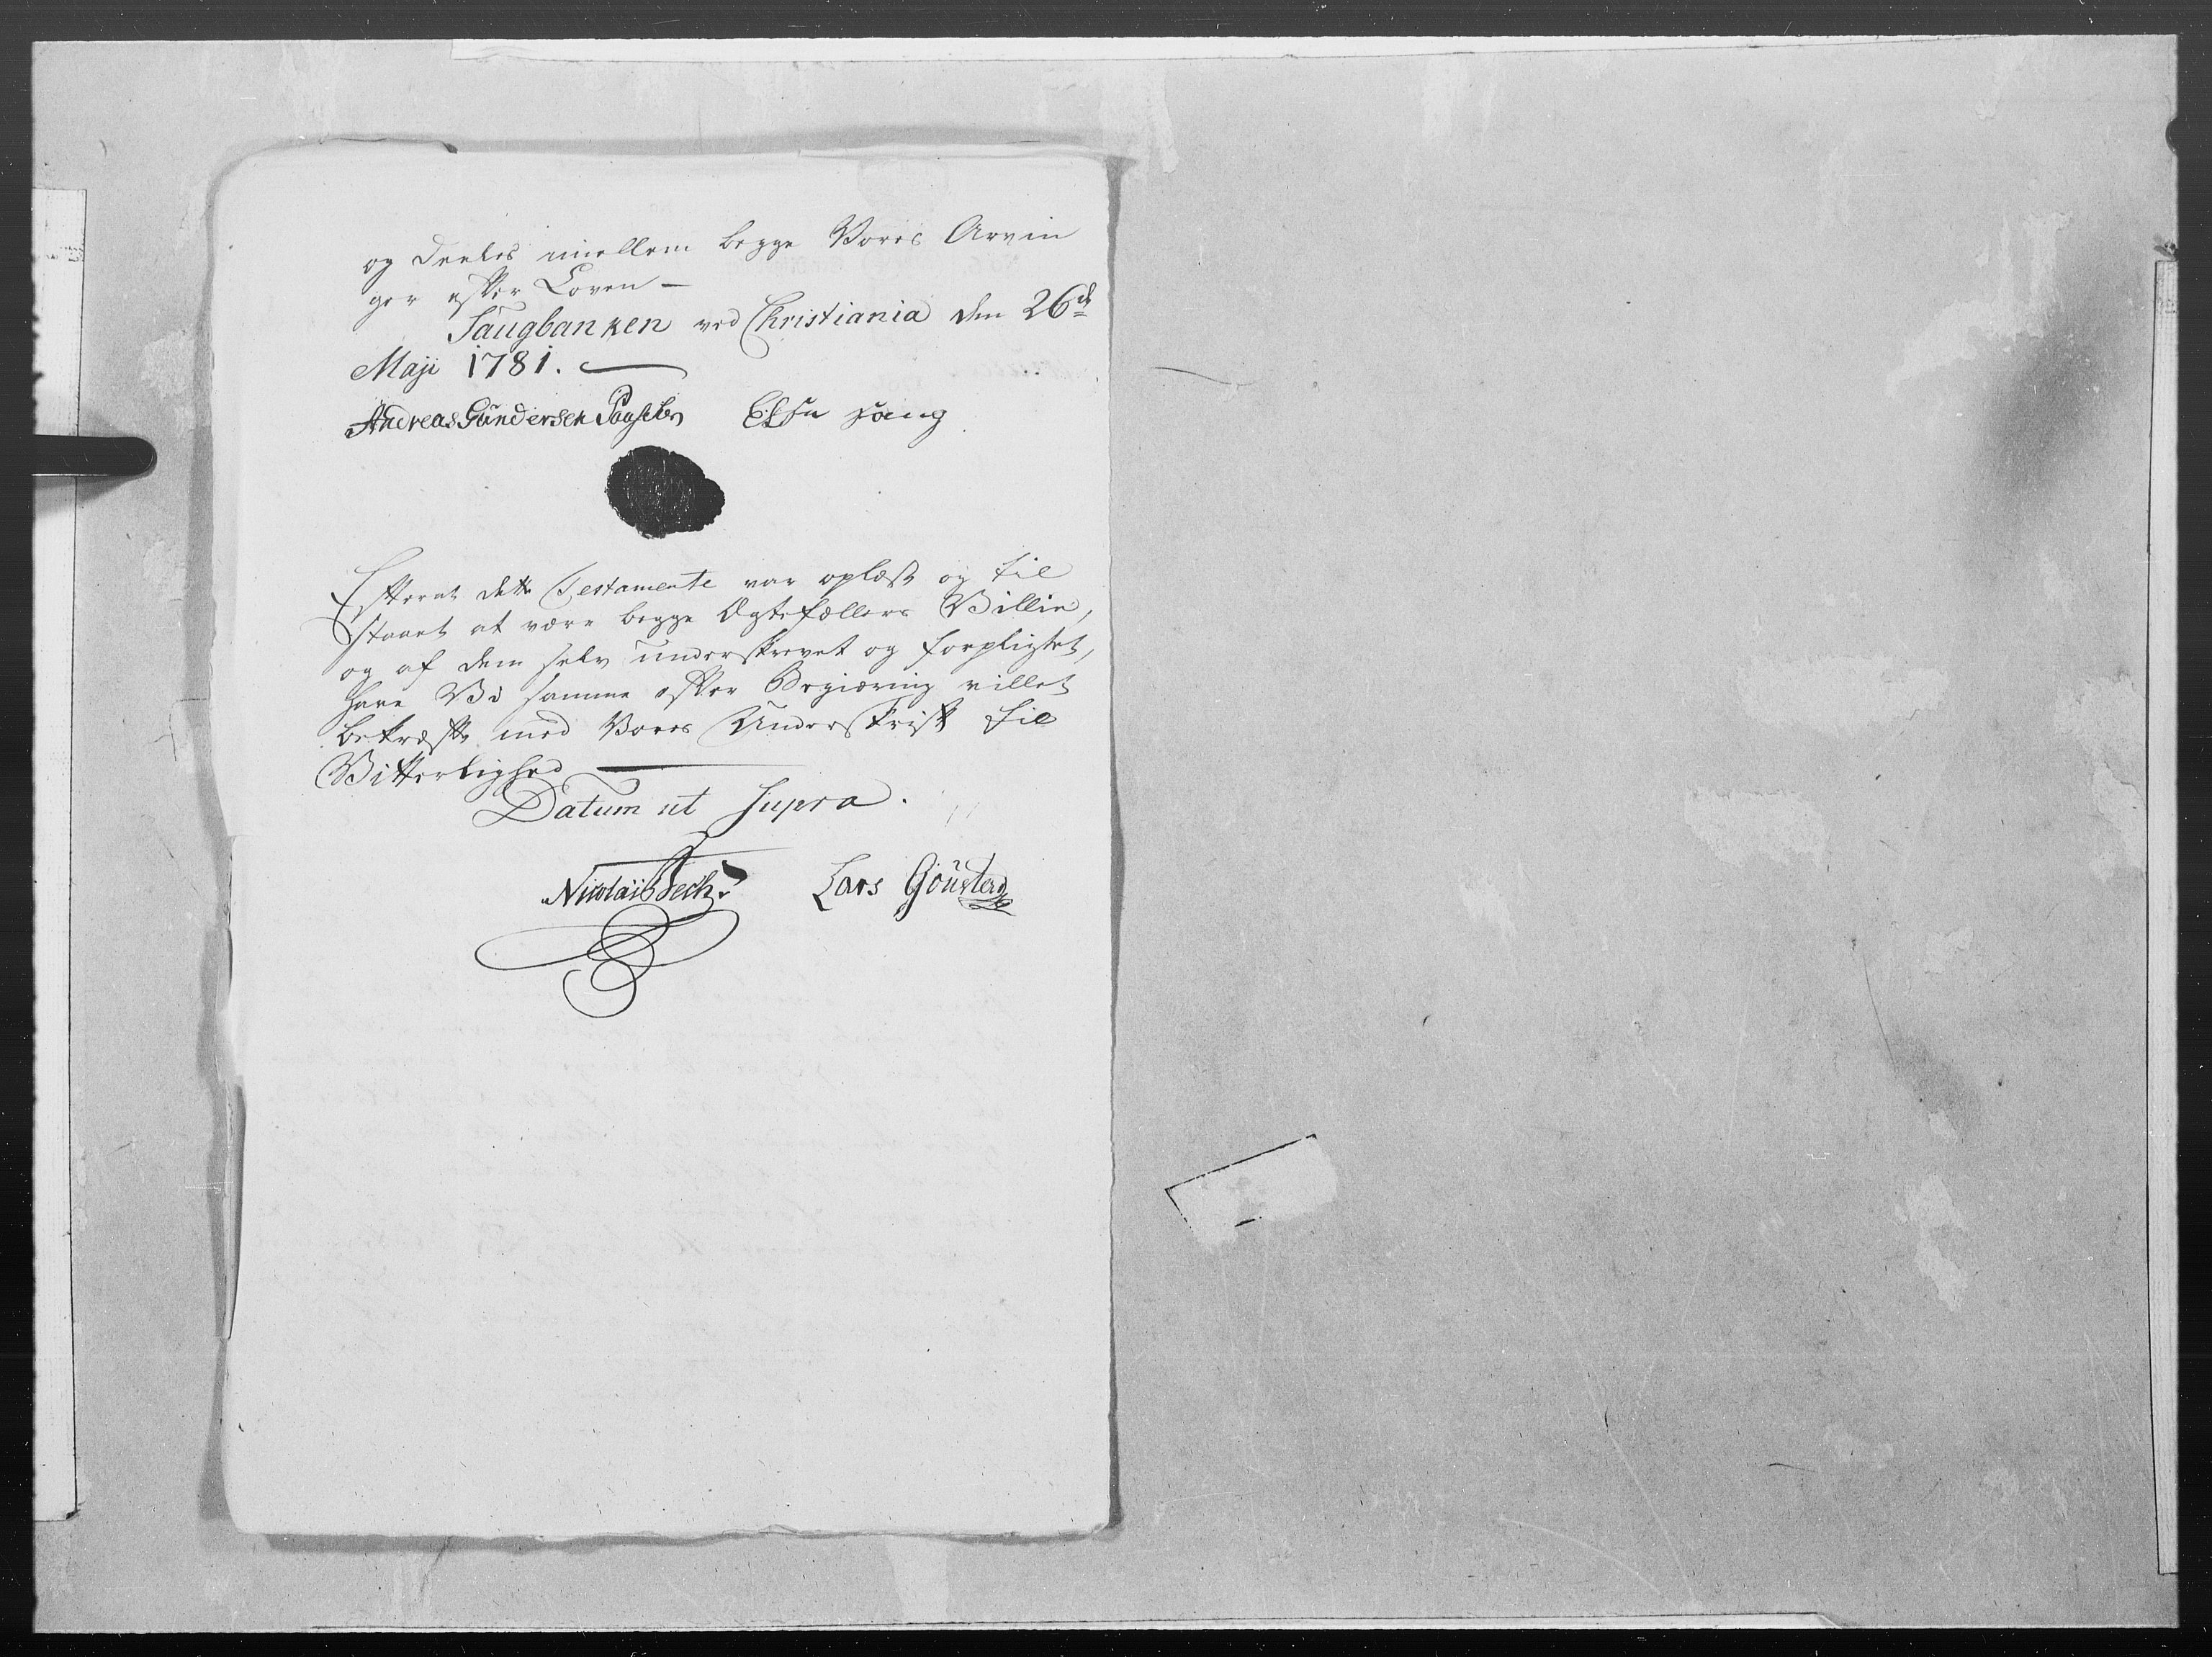 og deeles imellem begge Vores Arvin
ger efter Loven –
Saugbanken ved Christiania den 26de
Maji 1781.
Andreas Gundersen
Efterat dette Testamente var oplæst og til
staaet at være begge Ægtefællers Villie,
og af dem selv underskrevet og forpligtet,
have Vi samme efter Begiæring villet
bekræfte med Vores Underskrift til
Vitterlighed
Datum ut Supra.
Nicolai Bech. Lars